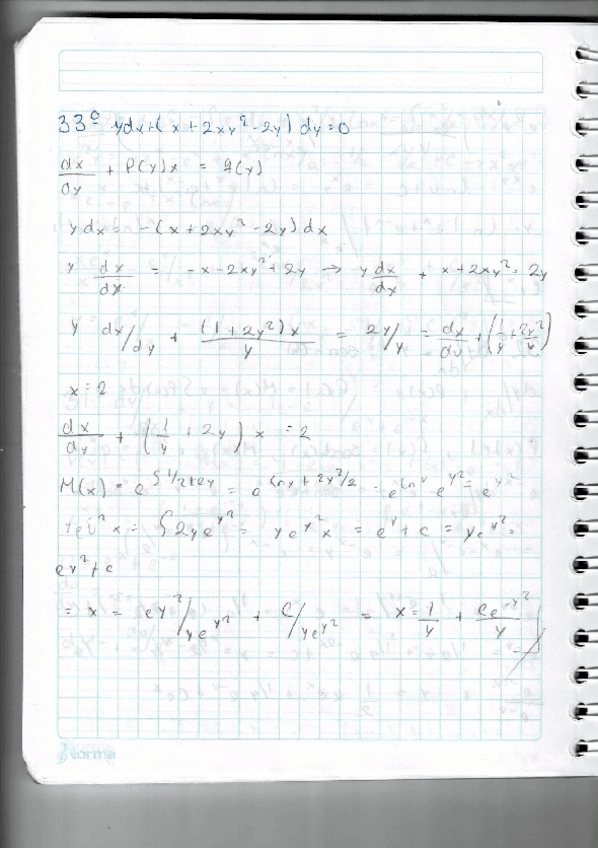 33º ydx+(x+2xy²-2y) dy=0
dx/dy + P(y)x = q(y)
ydx = -(x+2xy²-2y) dx
y dx/dx = -x-2xy²+2y → y dx/dx + x+2xy² = 2y
y dx/dy + (1+2y²)x/y = 2y/y = dx/dy + (1/y + 2y²/y)
x = 2
dx/dy + (1/y + 2y) x = 2
M(x) = e^∫1/2+2y = e^lny + 2y²/2 = e^lny e^y² = e^y²
x = ∫2ye^y² = ye^y² x = e^y + c = ye^y² =
ey² + c
= x = ey²/ye^y² + c/ye^y² = x = 1/y + ce^-y²/y
Norma